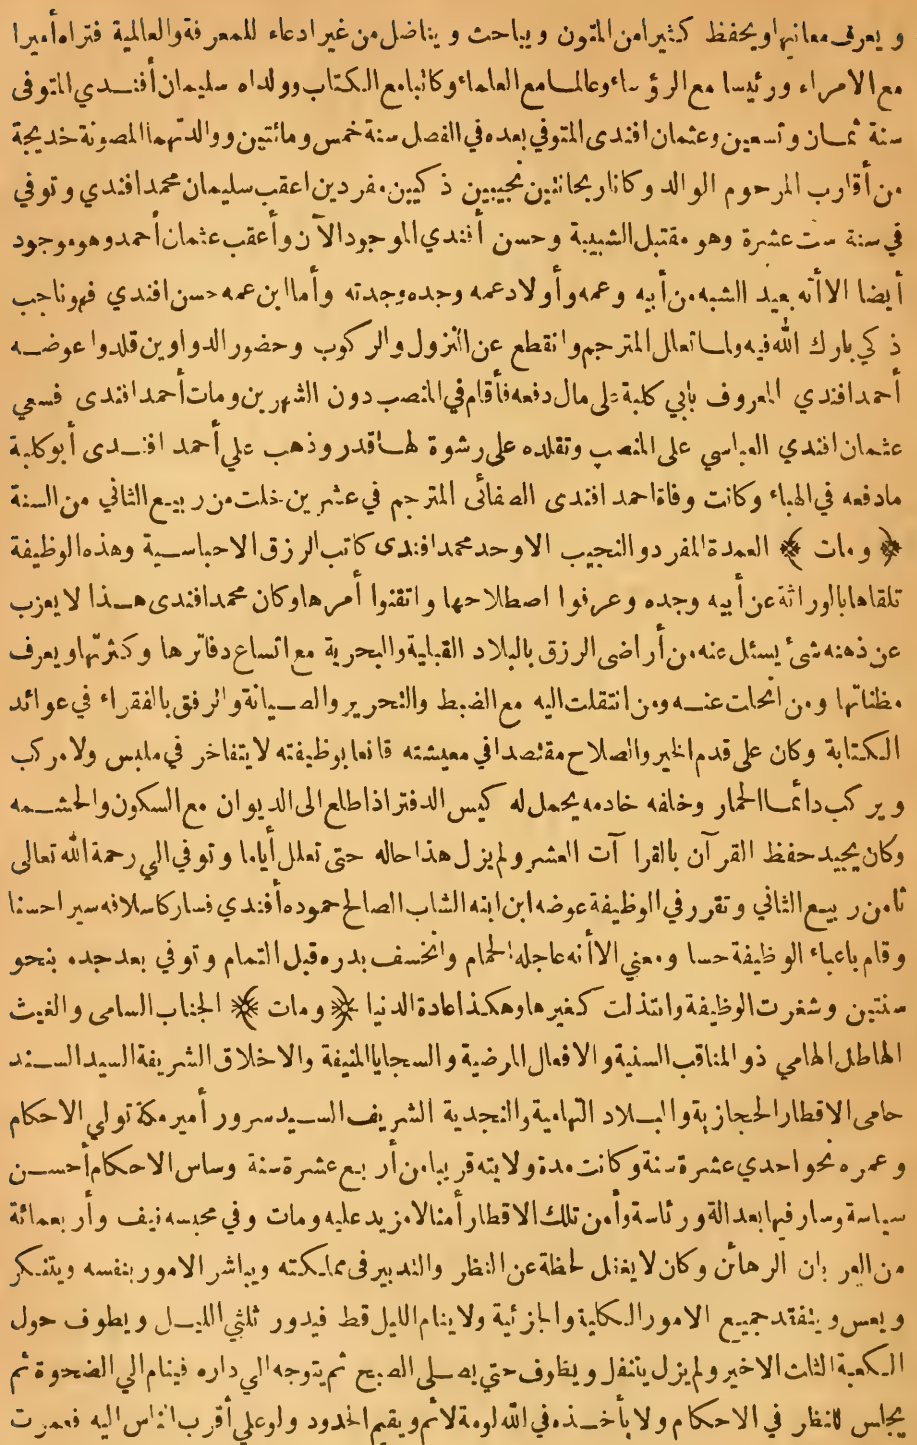 و يعرف معانيها ويحفظ كثيرا من المتون ويباحث و يناضل من غير ادعاء للمعرفة والعالمية فتراه أميرا
مع الامراء ورئيسا مع الرؤساء وعالما مع العلماء وكاتبا مع الكتاب وولداه سليمان أفندي المتوفى
سنة ثمان وتسعين وعثمان افندى المتوفي بعده في الفصل سنة خمس ومائتين ووالدتهما المصونة خديجة
من أقارب المرحوم الوالد وكانا ريحانتين نجيبين ذكيين مفردين اعقب سليمان محمد افندي وتوفي
في سنة ست عشرة وهو مقتبل الشبيبة وحسن أفندي الموجود الآن وأعقب عثمان أحمد وهو موجود
أيضا الا أنه بعيد الشبه من أبيه وعمه وأولاد عمه وجده وجدته وأما ابن عمه حسن افندي فهو ناجب
ذكي بارك الله فيه ولما تعال المترجم وانقطع عن النزول والركوب وحضور الدواوين قلدوا عوضه
أحمد افندي المعروف بأبي كلبة على مال دفعه فأقام في المنصب دون الشهرين ومات أحمد افندى فسعي
عثمان افندي العباسي على المنصب وتقلده على رشوة لها قدر وذهب علي أحمد افندى أبو كلبة
مادفعه في الهباء وكانت وفاة احمد افندى الصفائى المترجم في عشرين خلت من ربيع الثاني من السنة
﴿ ومات ﴾ العمدة المفرد والنجيب الاوحد محمد افندى كاتب الرزق الاحباسية وهذه الوظيفة
تلقاها بالوراثة عن أبيه وجده وعرفوا اصطلاحها واتقنوا أمرها وكان محمد افندى هذا لا يعزب
عن ذهنه شئ يسئل عنه من أراضى الرزق بالبلاد القبلية والبحرية مع اتساع دفاترها وكثرتها ويعرف
مظناتها ومن انحلت عنه ومن انتقلت اليه مع الضبط والتحرير والصيانة والرفق بالفقراء في عوائد
الكتابة وكان على قدم الخير والصلاح مقتصدا في معيشته قانعا بوظيفته لا يتفاخر في ملبس ولا مركب
ويركب دائما الحمار وخلفه خادمه يحمل له كيس الدفتر اذا طلع الى الديوان مع السكون والحشمه
وكان يجيد حفظ القرآن بالقراآت العشر ولم يزل هذا حاله حتى تعلل أياما وتوفي الي رحمة الله تعالى
ثامن ربيع الثاني وتقرر في الوظيفة عوضه ابن ابنه الشاب الصالح حموده أفندي فسار كاسلافه سيرا حسنا
وقام باعباء الوظيفة حسا ومعني الا أنه عاجله الحمام وانخسف بدره قبل التمام وتوفي بعد جده بنحو
سنتين وشغرت الوظيفة وابتذلت كغيرها وهكذا عادة الدنيا ﴿ ومات ﴾ الجناب السامى والغيث
الهاطل الهامي ذو المناقب السنية والافعال المرضية والسجايا المنيفة والاخلاق الشريفة السيد السند
حامى الاقطار الحجازية والبلاد التهامية والنجدية الشريف السيد سرور أمير مكة تولي الاحكام
وعمره نحو احدي عشرة سنة وكانت مدة ولايته قريبا من أربع عشرة سنة وساس الاحكام أحسن
سياسة وسار فيها بعدالة ورئاسة وأمن تلك الاقطار أمنا لا مزيد عليه ومات وفي محبسه نيف وأربعمائة
من العربان الرهائن وكان لا يغفل لحظة عن النظر والتدبير فى مملكته ويباشر الامور بنفسه ويتنكر
ويعس ويتفقد جميع الامور الكلية والجزئية ولا ينام الليل قط فيدور ثلثي الليل ويطوف حول
الكعبة الثلث الاخير ولم يزل يتنفل ويطوف حتي يصلى الصبح ثم يتوجه الي داره فينام الي الضحوة ثم
يجلس للنظر في الاحكام ولا يأخذه في الله لومة لائم ويقيم الحدود ولو علي أقرب الناس اليه فعمرت